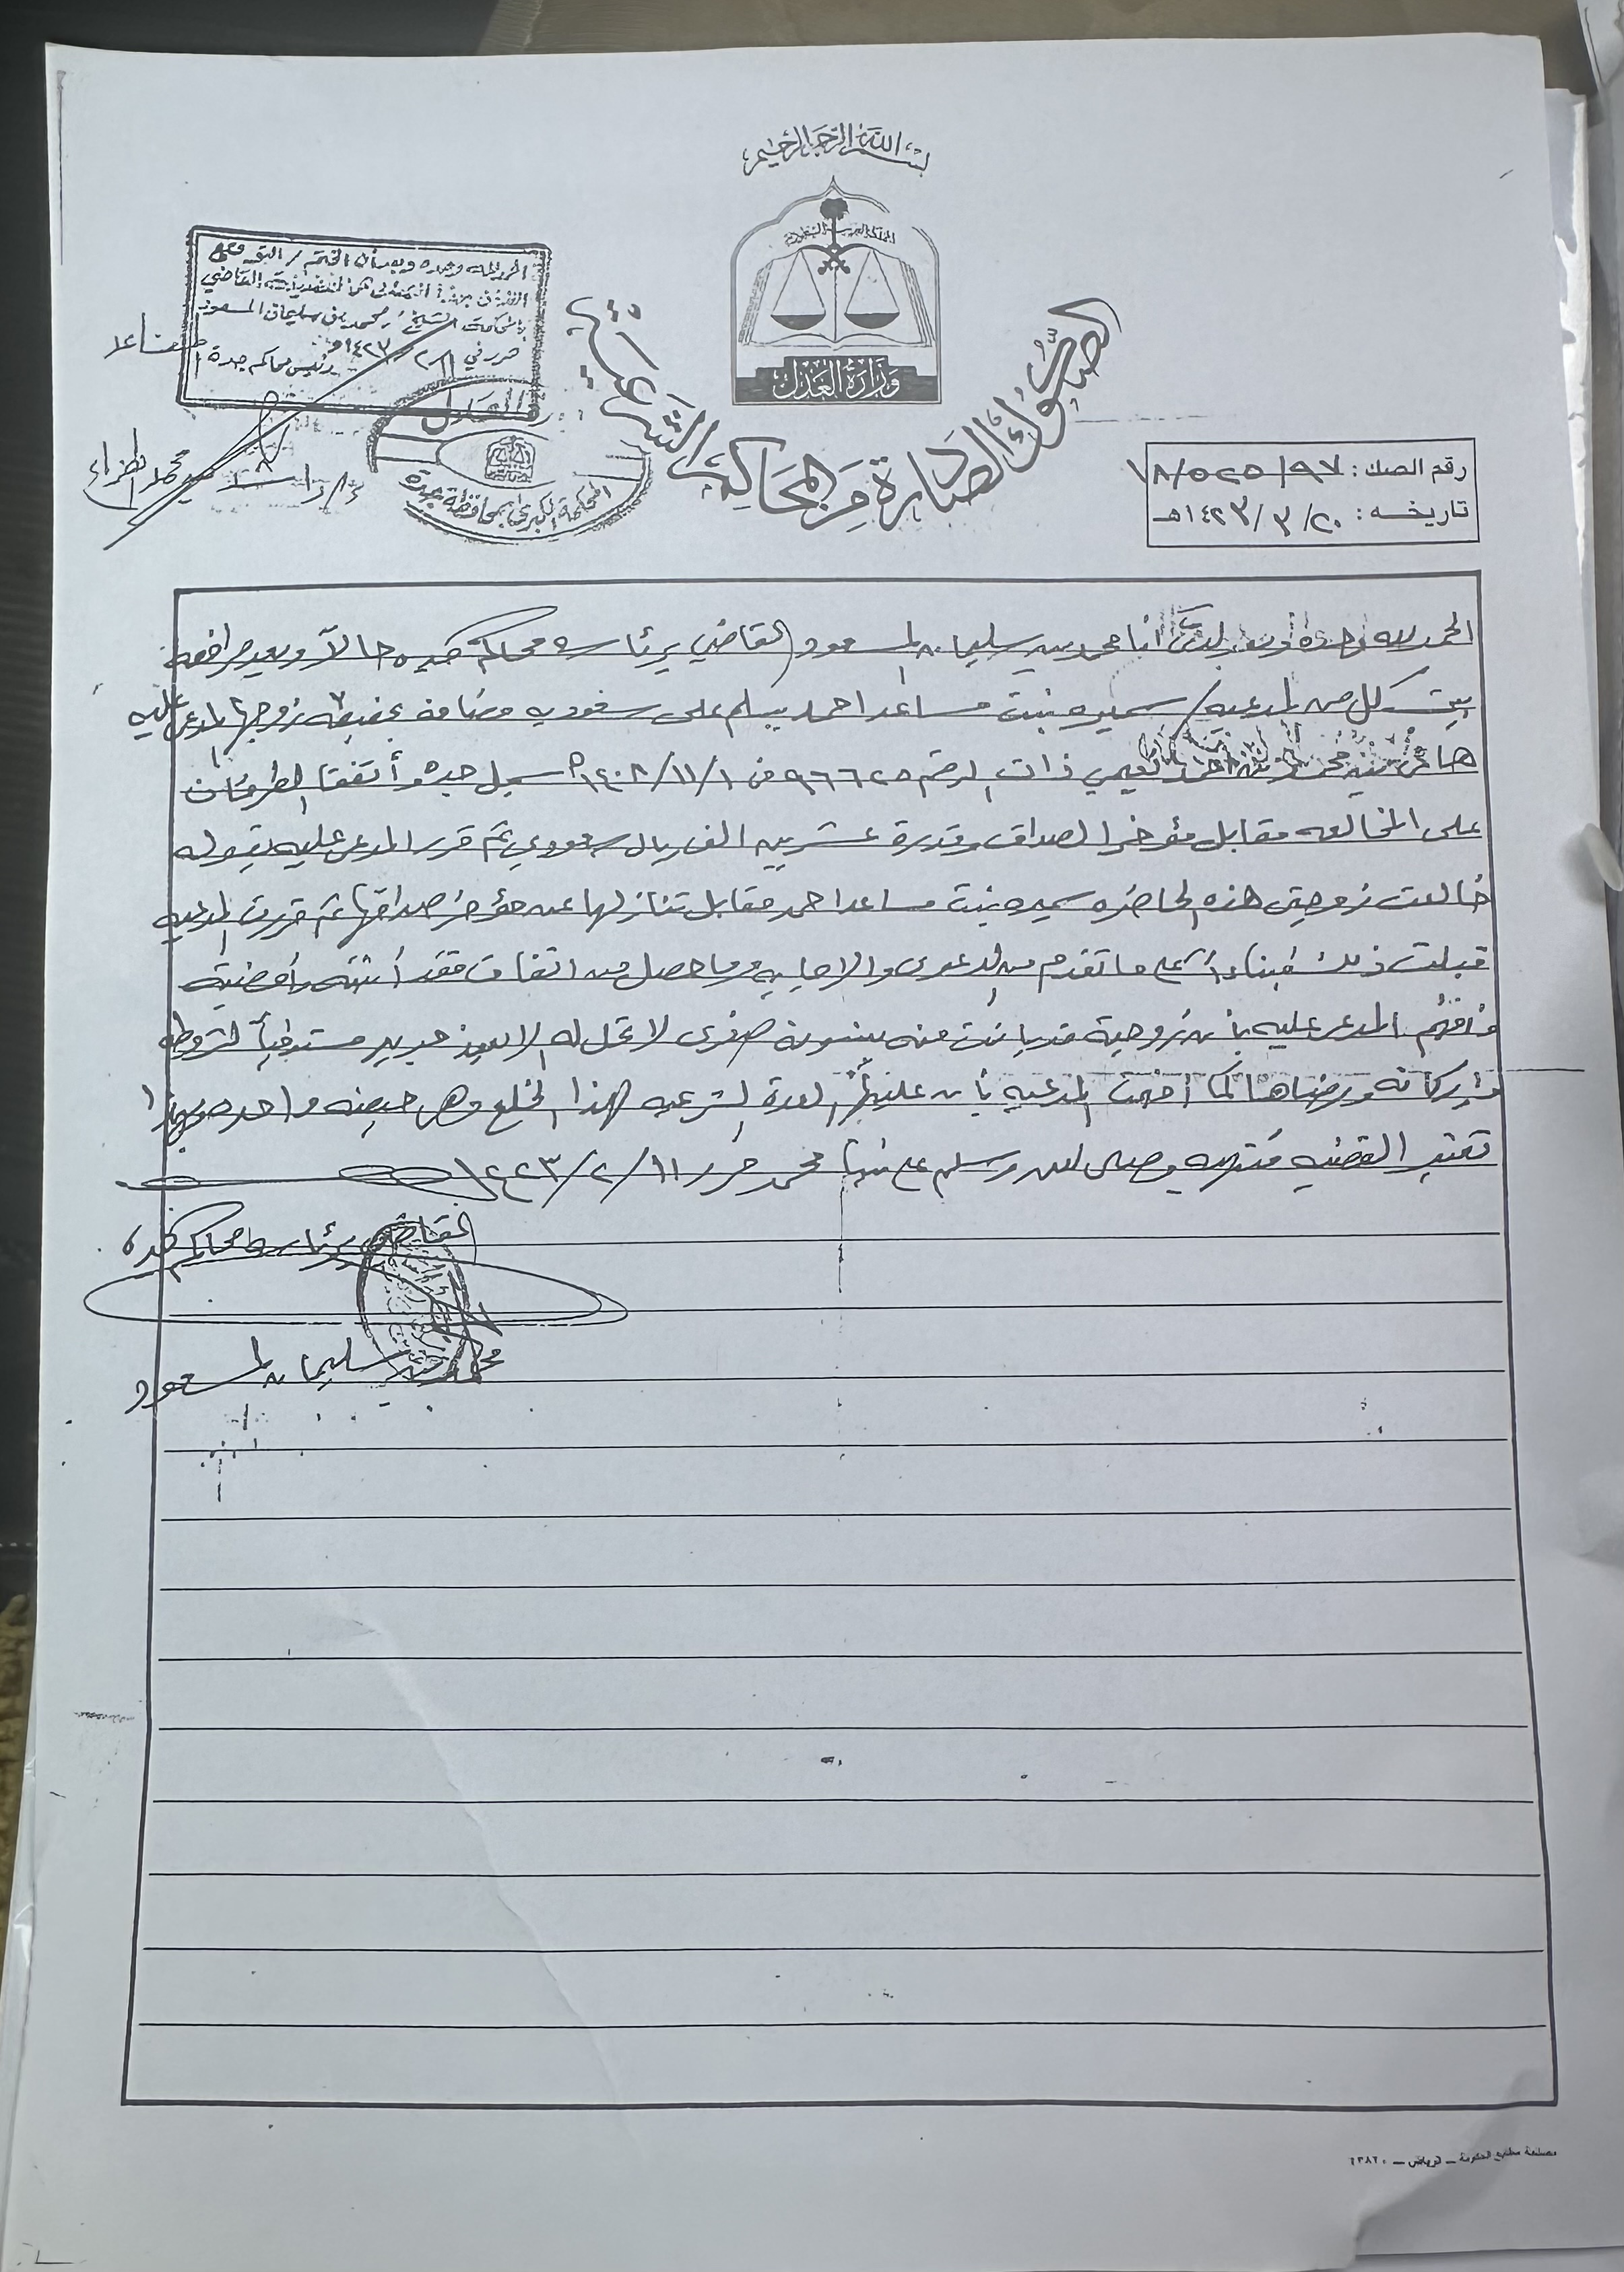 بسم الله الرحمن الرحيم
المملكة العربية السعودية
وزارة العدل
الصكوك الصادرة من المحاكم الشرعية
الحمد لله وحده وبعد أن الختم / التوقيع
القاضي
بالمحكمة الشيخ / محمد بن سليمان المسعود
حرر في ١١ / ٢ / ١٤٢٣هـ
رئيس محاكم جدة
المحكمة الكبرى بمحافظة جدة
رقم الصك : ١٨/٥٢٥/٩٧
تاريخه : ٢٠ / ٣ / ١٤٢٣هـ
الحمد لله وحده وبعد لدي أنا محمد بن سليمان المسعود القاضي برئاسة محاكم جده حالاً وبعد مرافعة
بين كل من المدعيه / سميره بنت مساعد احمد سعوديه مضافة بحفيظة زوجها المدعى عليه
ذات الرقم ٩٦٦٢٥ في ١ / ١١ / ١٤٠٨هـ سجل جده وأتفقا الطرفان
على المخالعه مقابل مؤخر الصداق وقدرة عشرين الف ريال سعودي ثم قرر المدعى عليه بقوله
خالعت زوجتي هذه الحاضره سميره بنت مساعد احمد مقابل تنازلها عن مؤخر صداقها ثم قررت المدعيه
قبلت ذلك فبناءً على ما تقدم من الدعوى والاجابه وما حصل من اتفاق فقد أثبته وأمضيته
وأفهم المدعى عليه بأن زوجيته قد بانت منه بينونة صغرى لا تحل له الا بعقد جديد مستوفياً لشروطه
وأركانه ورضاها كما أفهمت المدعيه بأن عليها العدة الشرعيه لهذا الخلع وهي حيضه واحده وبهذا
تعتبر القضيه منتهيه وصلى الله وسلم على نبينا محمد حرر ١١ / ٢ / ١٤٢٣
القاضي برئاسة محاكم جده
محمد بن سليمان المسعود
مطبعة مطابع الحكومة - الرياض -